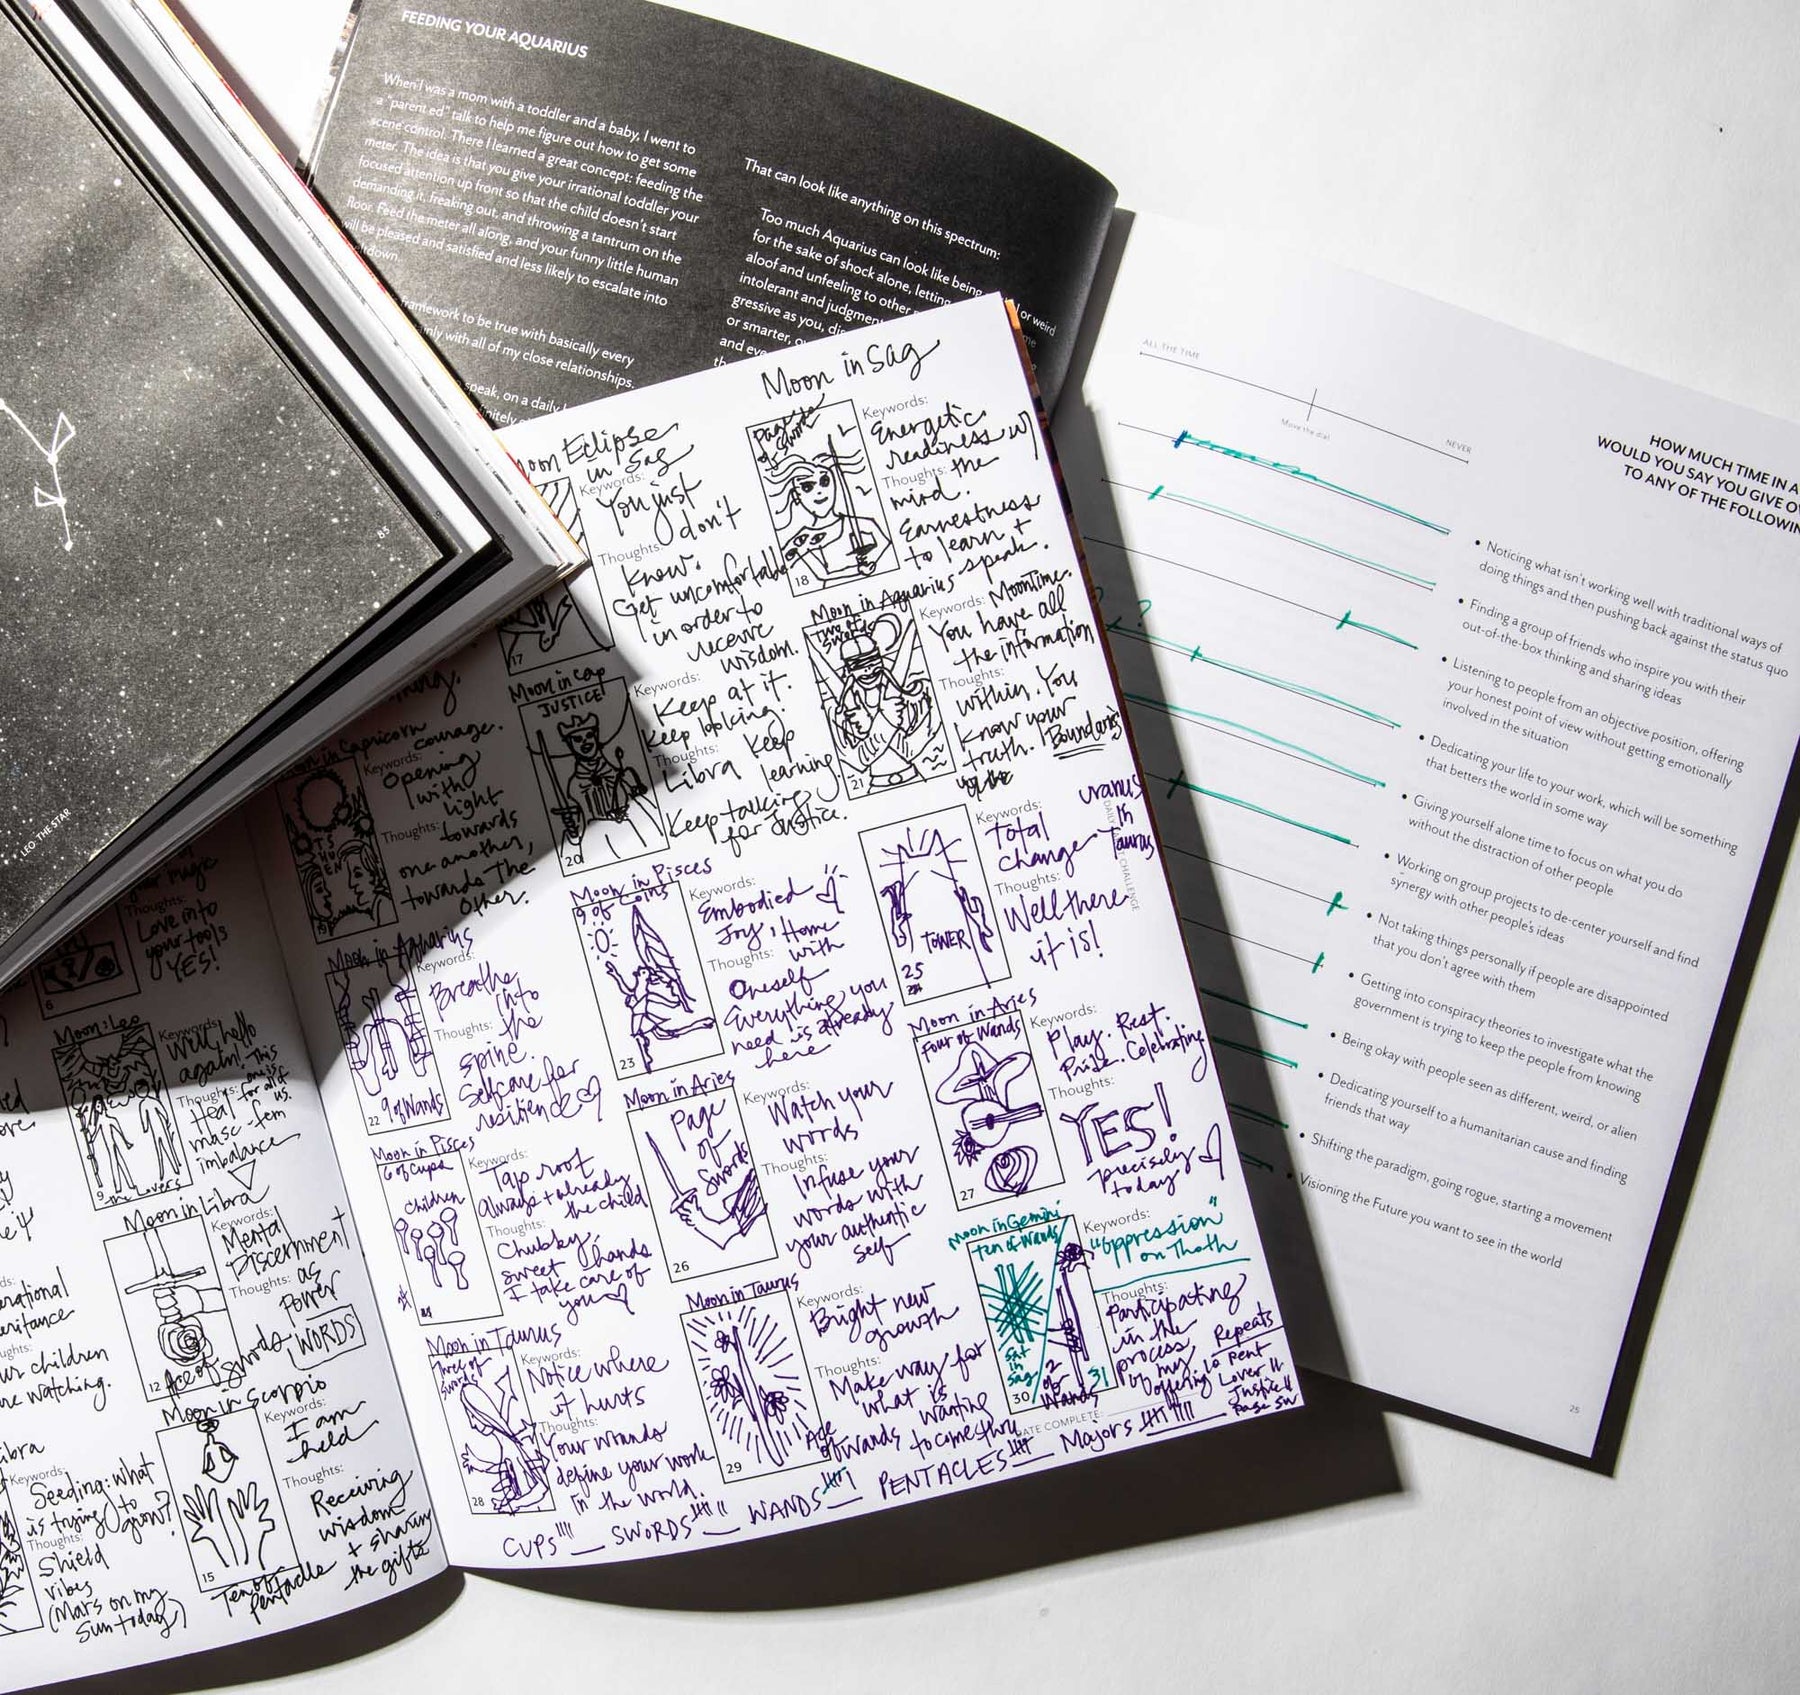 FEEDING YOUR AQUARIUS
When I was a mom with a toddler and a baby, I went to
a "parent ed" talk to help me figure out how to get some
scene control. There I learned a great concept: feeding the
meter. The idea is that you give your irrational toddler your
focused attention up front so that the child doesn't start
demanding it, freaking out, and throwing a tantrum on the
floor. Feed the meter all along, and your funny little human
will be pleased and satisfied and less likely to escalate into
framework to be true with basically every
with all of my close relationships.
speak, on a daily
That can look like anything on this spectrum:
Too much Aquarius can look like being
or weird
for the sake of shock alone, letting
aloof and unfeeling to other
intolerant and judgment
gressive as you, dis
or smarter, o
and eve
the
85
LEO: THE STAR
ALL THE TIME
Move the dial
NEVER
HOW MUCH TIME IN A
WOULD YOU SAY YOU GIVE OV
TO ANY OF THE FOLLOWIN
• Noticing what isn't working well with traditional ways of
doing things and then pushing back against the status quo
• Finding a group of friends who inspire you with their
out-of-the-box thinking and sharing ideas
• Listening to people from an objective position, offering
your honest point of view without getting emotionally
involved in the situation
• Dedicating your life to your work, which will be something
that betters the world in some way
• Giving yourself alone time to focus on what you do
without the distraction of other people
• Working on group projects to de-center yourself and find
synergy with other people's ideas
• Not taking things personally if people are disappointed
that you don't agree with them
• Getting into conspiracy theories to investigate what the
government is trying to keep the people from knowing
• Being okay with people seen as different, weird, or alien
• Dedicating yourself to a humanitarian cause and finding
friends that way
• Shifting the paradigm, going rogue, starting a movement
• Visioning the Future you want to see in the world
25
? ?
Moon Eclipse
in Sag
Keywords:
You just
don't
Thoughts:
know.
Get uncomfortable
in order to
receive
wisdom.
17
Moon in Sag
Page of
Swords
18
Keywords:
Energetic
readiness w/
Thoughts: the
mind.
Earnestness
to learn +
speak.
Moon in Capricorn
Keywords: courage.
Opening
with
light
Thoughts: towards
one another,
towards the
other.
Moon in Cap
JUSTICE
20
Keywords:
Keep at it.
Keep looking.
Thoughts: Keep
Libra learning.
Keep talking
for Justice.
Moon in Aquarius
Two of
Swords
21
Keywords: Moontime.
You have all
the information
Thoughts:
within. You
know your
truth. Boundaries
Moon in Aquarius
22 9 of Wands
Keywords:
Breathe
into
Thoughts: the
spine.
Selfcare for
resilience
Moon in Pisces
9 of Coins
23
Keywords:
Embodied
Joy, Home
with
Thoughts:
Oneself
Everything you
need is already
here
TOWER
25
Keywords:
Total
Change
Thoughts:
Well there
it is!
Uranus
in
Taurus
DAILY
CHALLENGE
Moon in Pisces
6 of Cups
Children
Keywords:
Tap root
Always + already
the child
Thoughts:
Chubby,
sweet hands
I take care of
you
Moon in Aries
Page
of
Swords
26
Keywords:
Watch your
words
Thoughts:
Infuse your
words with
your authentic
self
Moon in Aries
Four of Wands
27
Keywords:
Play. Rest.
Pride. Celebrating
Thoughts:
YES!
precisely
today
Moon in Taurus
Three of
Swords
28
Keywords:
Notice where
it hurts
Thoughts:
Your wounds
define your work
in the world.
Moon in Taurus
29
Ace
of Wands
Keywords:
Bright new
growth
Thoughts:
Make way for
what is
wanting
to come thru
Moon in Gemini
ten of Wands
Sat
in
Sag
30
2
of
Wands
31
Keywords:
"Oppression"
on Thoth
Thoughts:
Participating
in the
process
of my
offering
Repeats
Lover II
Justice II
Page SW
DATE COMPLETE:
CUPS IIII SWORDS WANDS PENTACLES Majors
magic
Thoughts:
Love into
your tools
YES!
6
Moon: Leo
9 the Lovers
Keywords:
Well, hello
again! This
one is
Thoughts: for all of
Heal us.
masc-fem
imbalance
Moon in Libra
12 Ace of Swords
Keywords:
Mental
Discernment
Thoughts: as
power
WORDS
Moon in Scorpio
15
Ten of
Pentacle
Keywords:
I am
held
Thoughts:
Receiving
wisdom
+ sharing
the gifts
Keywords:
Seeding: what
is trying to
grow?
Thoughts:
Shield
vibes
(Mars on my
Sun today)
children
watching.